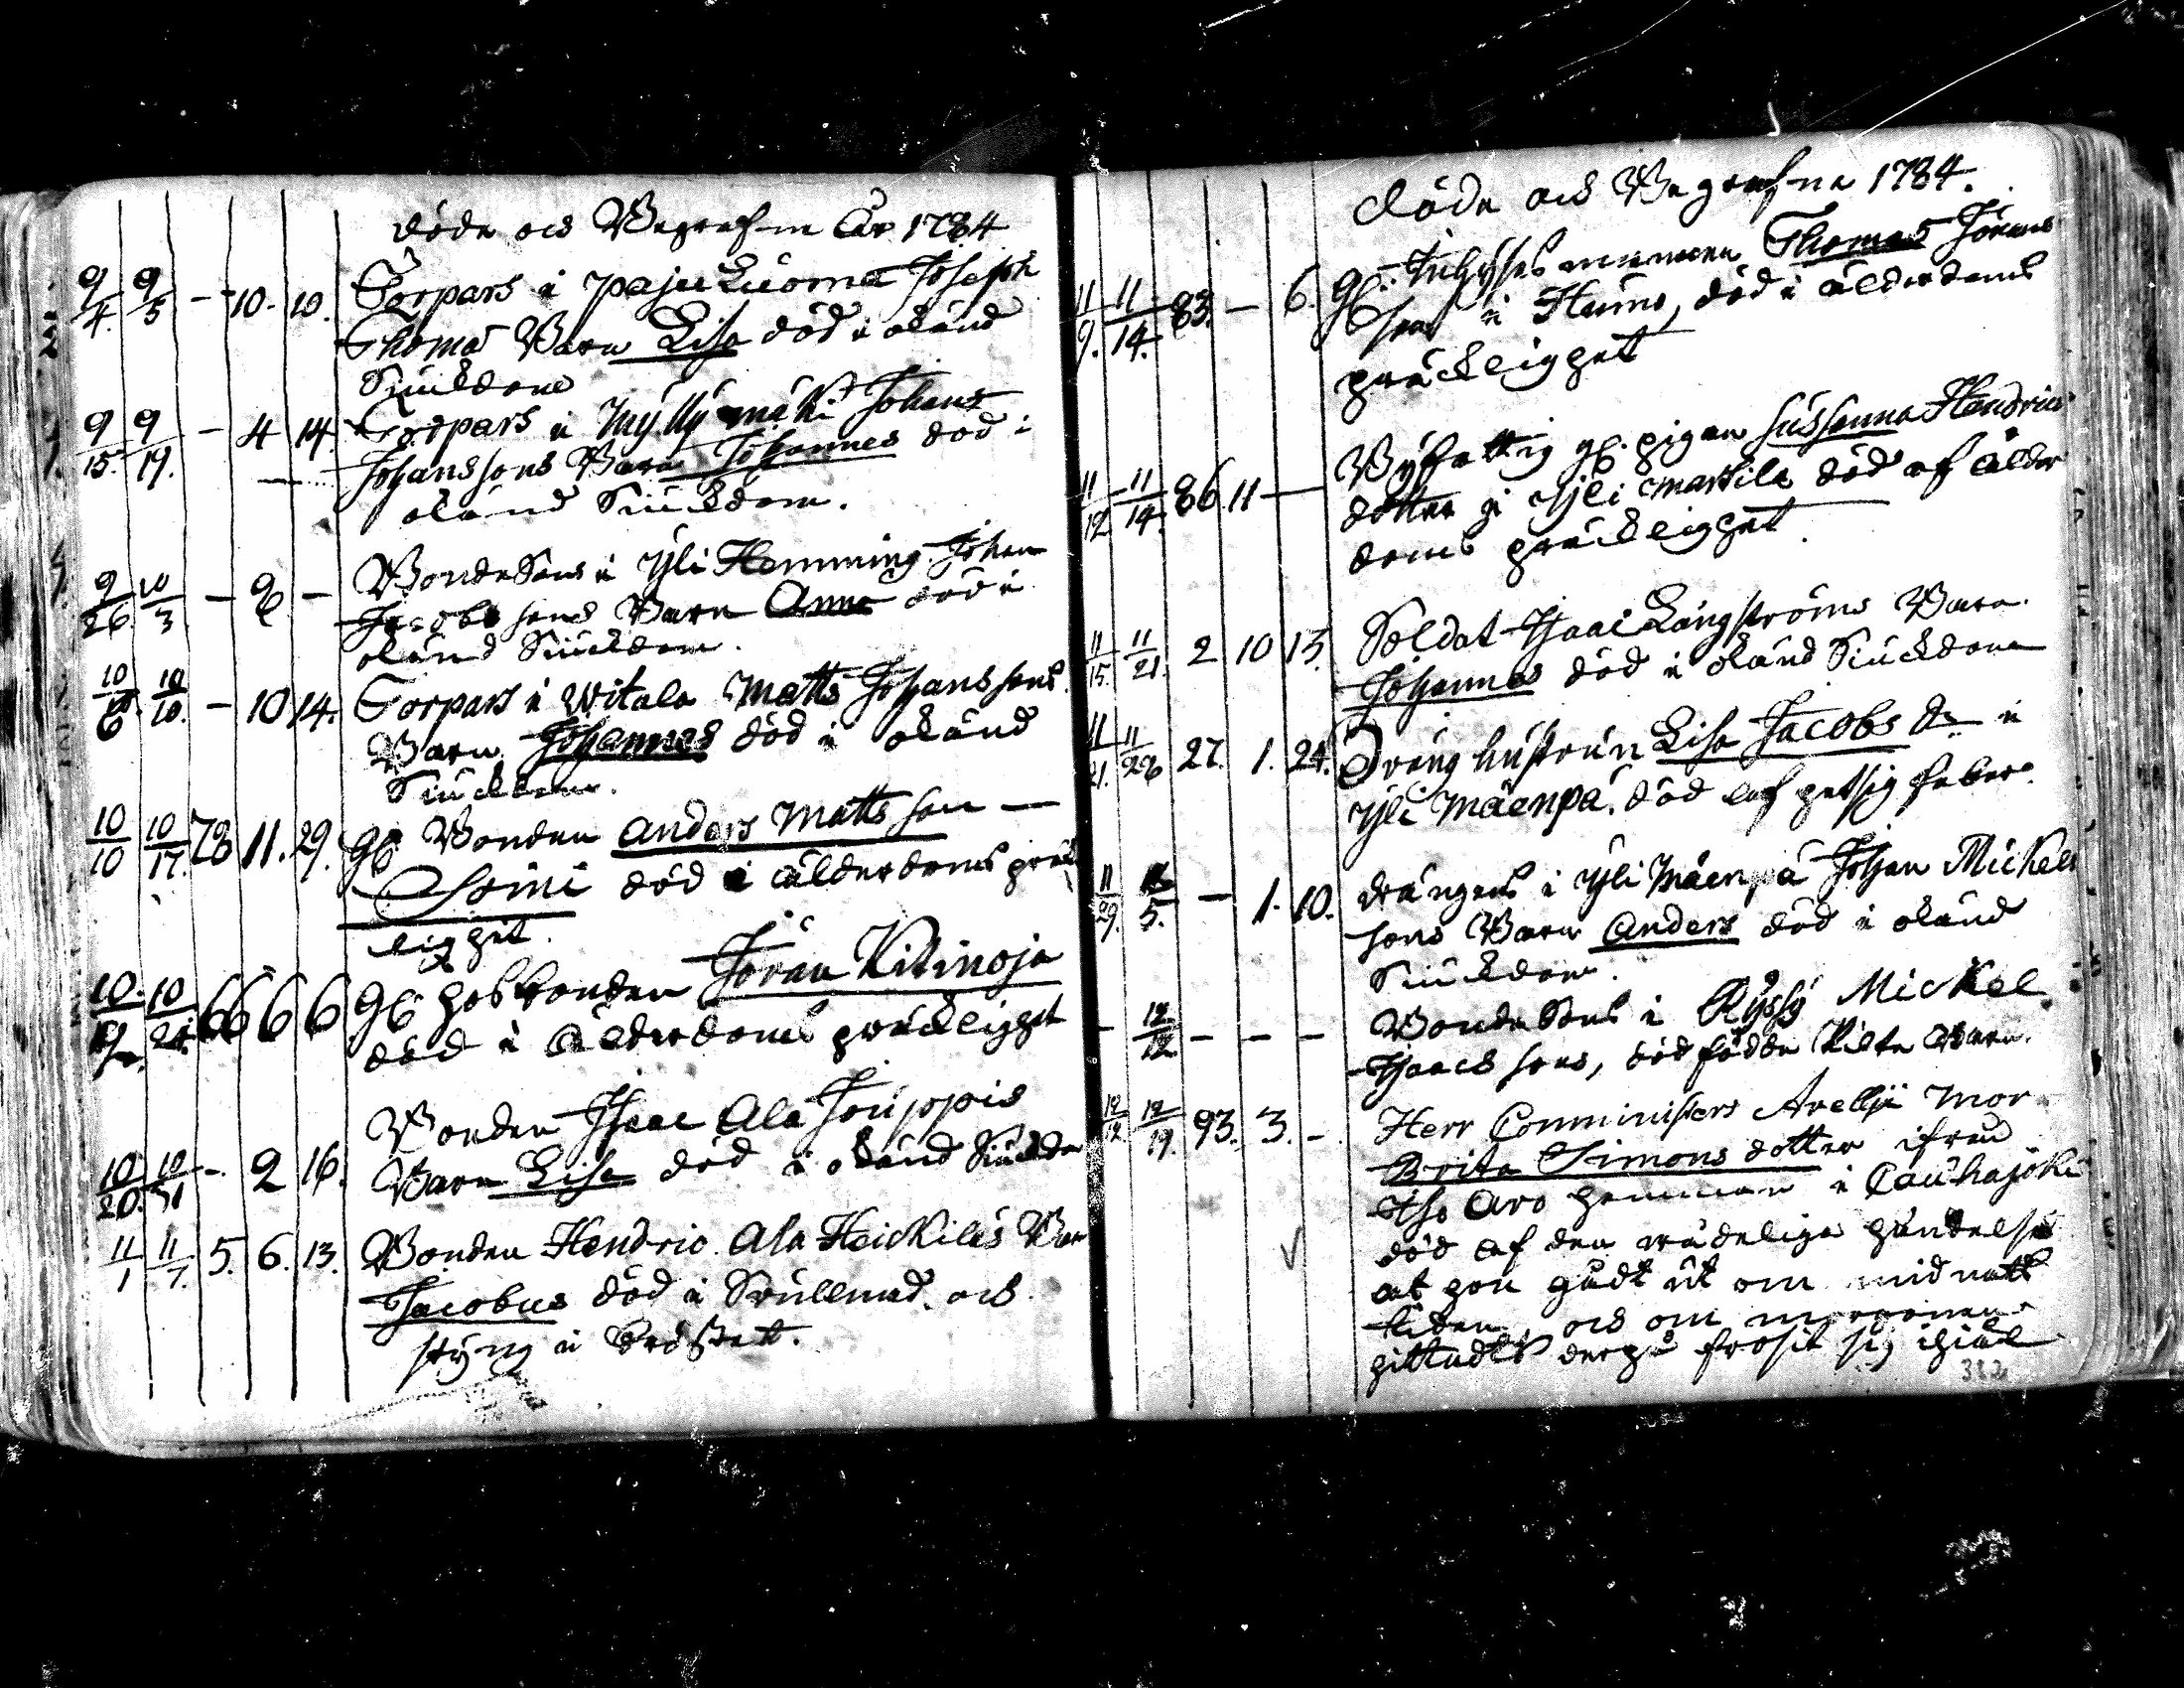 Döde och Begrafne År 1784
9/4. 9/5 - 10. 10. Torpars i Pajuluoma Joseph
Thomæ Barn Lisa död i okänd
Siukdom
9/15. 9/19. - 4 14. Torpars i Myllymäki Johans
Johanssons Barn Johannes död i
okänd Siukdom.
9/26 10/3 - 9 - BondeSons i Yli Hemming Johan
Jacobssons Barn Anna död i
okänd Siukdom.
10/6. 10/10. - 10 14. Torpars i Witala Matts Johanssons
Barn Johannes död i okänd
Siukdom.
10/10 10/17. 78 11. 29. Gl Bonden Anders Mattsson
Somi död i ålderdoms präck
lighet.
10. 10/24. 66 6 6 Gl hosbonden Jöran Kitinoja
död i ålderdoms präcklighet
Bonden Isaac Ala Jouppis
10/20. 10/31 - 2 16. Barn Lisa död i okänd Siukdom
11/1 11/7. 5. 6. 13. Bonden Hendric Ala Heickiläs Barn
Jacobus död i Svullnad och
styng i bröstet.
Döde och Begrafne 1784.
11/9. 11/14. 83. - 6. Gl. Inhyses mannen Thomas Jörans
son i Heimo, död i ålderdoms
präcklighet
11/12 11/14. 86 11 - Byfattig gl. pigan Susanna Hendrics
dotter i Yli Martila död af ålder
doms präcklighet.
11/15. 11/21. 2 10 13. Soldat Isaac Långströms Barn
Johannes död i okänd Siukdom
11/21. 11/28 27. 1. 24. Dräng hustrun Lisa Jacobs dr i
Yli Mäenpä. död af hetsig feber.
11/29. 12/5. - 1. 10. drängens i Yli Mäenpä Johan Mickels
sons Barn Anders död i okänd
Siukdom.
- 12/12 - - - BondeSons i Ryssy Mickel
Isaacs sons, dödfödde Barn.
12/12 12/19. 93. 3. - Herr Comministers Arellji Mor
Brita Simons dotter ifrån
Iso Aro hemman i Cauhajoki
död af den händelse
at hon gådt ut om midnatts
tiden, och om morgonen
hittades frosit sig ihiäl
382